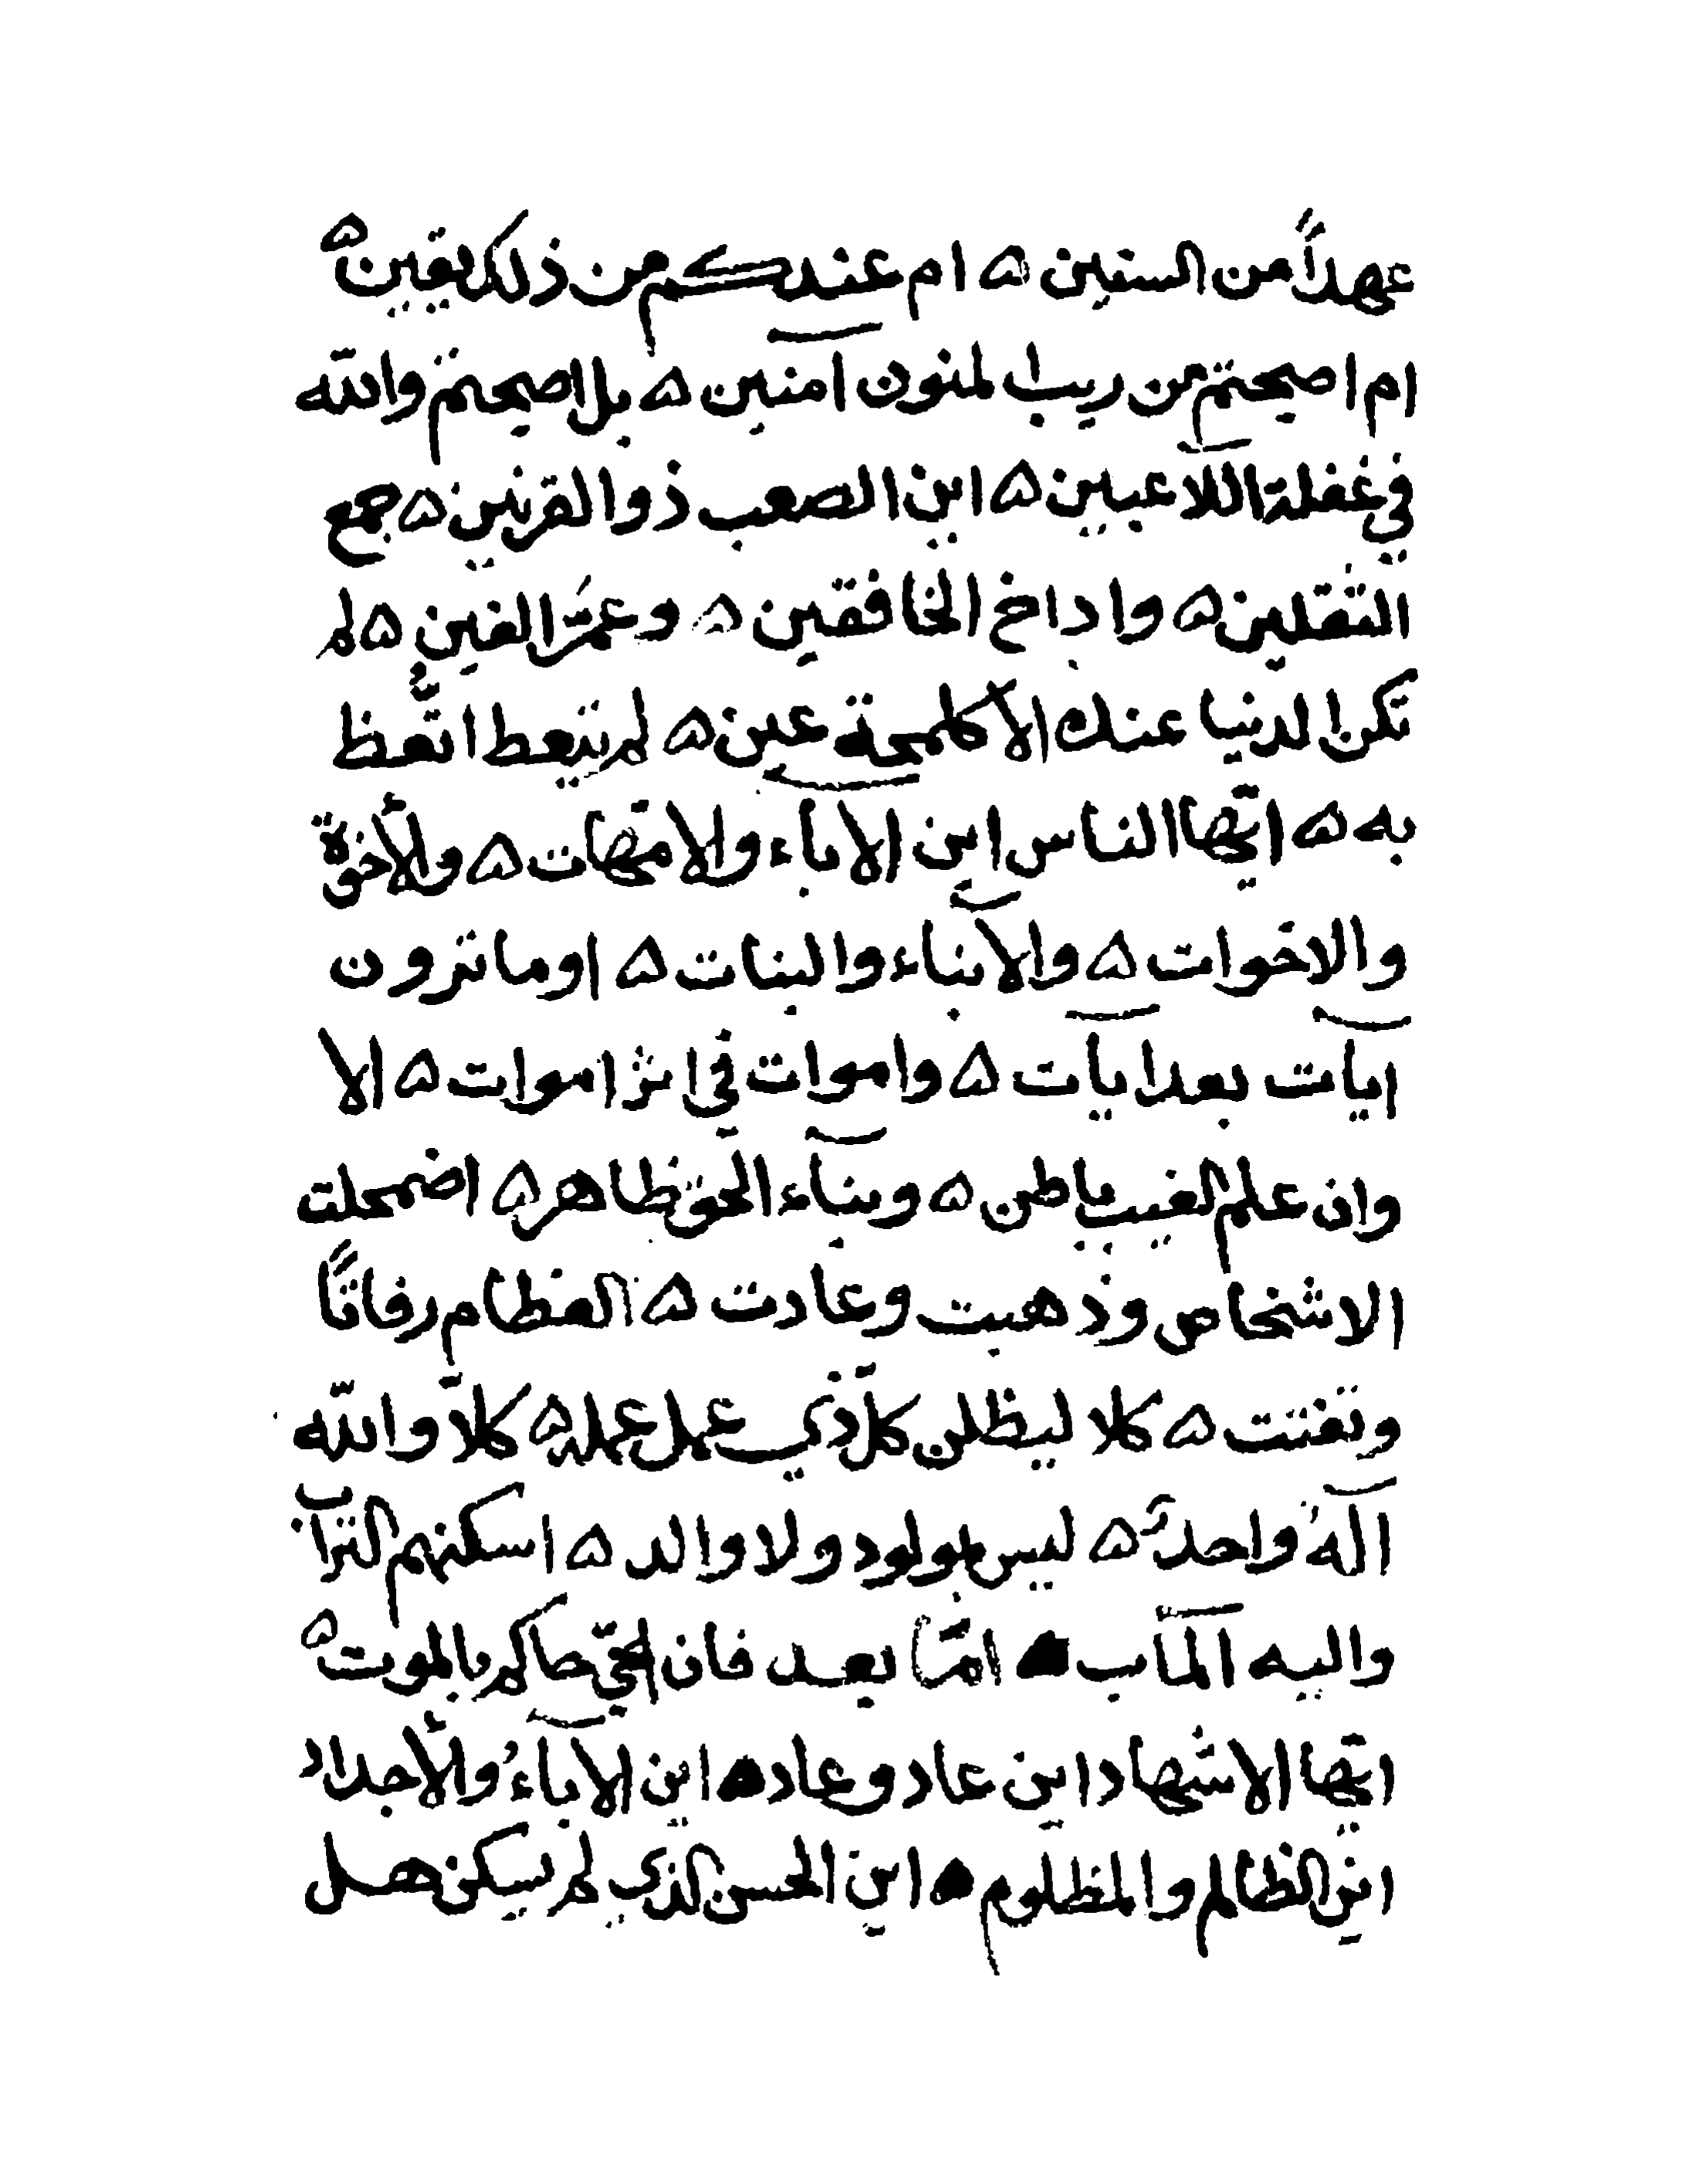 عهداً من السنين ۵ ام عندكم من ذلك يقين ۵
ام اصبحتم من ريب المنون آمنين ۵ بل اصبحتم والله
في غفلة اللاعبين ۵ اين الصعب ذوالقرنين ۵ جمع
الثقلين ۵ واداخ الخافقين ۵ وعمّر الفين ۵ لم
تكن الدنيا عندك الا كلمحة عين ۵ لم يتعظ اتّعظ
به ۵ ايّها الناس اين الاباء والامّهات ۵ والأخوة
والاخوات ۵ والآبناء والبنات ۵ اوما ترون
آيات بعد آيات ۵ واموات في اثر اموات ۵ الا
وان علم الغيب باطن ۵ وبنآء الحق ظاهر ۵ اضمحلت
الاشخاص وذهبت وعادت ۵ العظام رفاتاً
وتفتت ۵ كلا ليظلن كلّ ذي عمل عمله ۵ كلاّ والله
آلهُ واحدٌ ۵ ليس بمولود ولا والد ۵ اسكنهم التراب
واليه المآب ۵ امّا بعد فان الحيّ حاكم بالموت ۵
ايّها الاشهاد اين عاد وعاد ۵ اين الآباءُ والأجداد
اين الظالم والمظلوم ۵ اين الحسن الذي لم يسكن هل